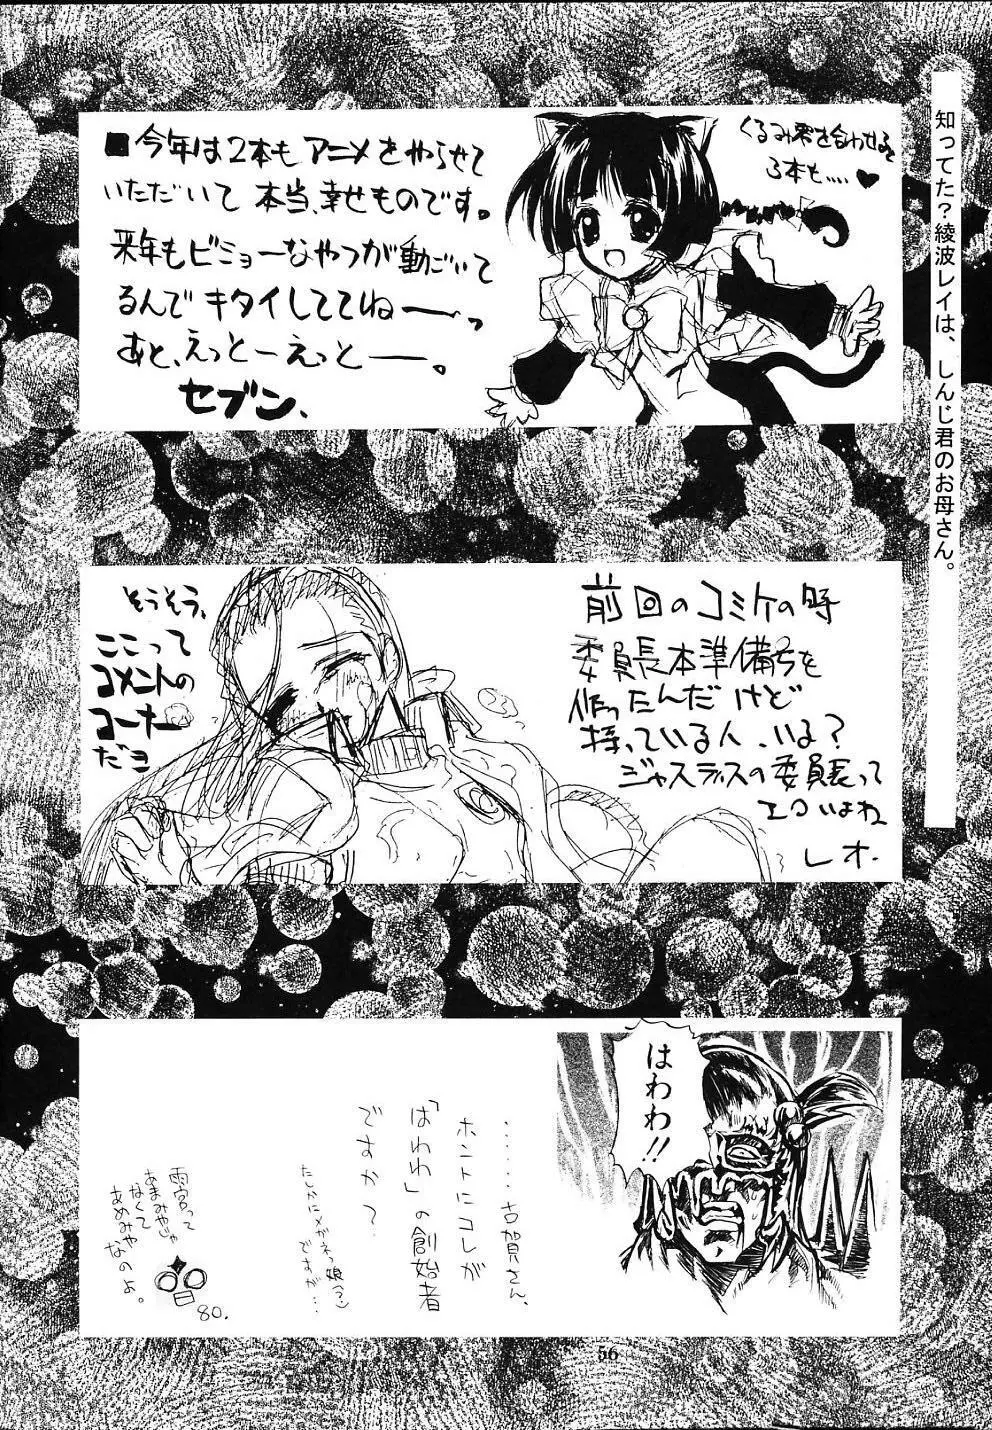 知ってた?綾波レイは、しんじ君のお母さん。
■今年は2本もアニメをやらせて
いただいて本当、幸せものです。
来年もビミョーなやつが動ごいて
るんでキタイしててねーっ
あと、えっとーえっとー。
セブン、
くるみ零を合わせると
3本も....♥
前回のコミケの時
委員長本準備号を
作ったんだけど
持っている人、いる?
ジャスティスの委員長って
エロいよね
レオ.
そうそう、
ここって
コメントの
コーナー
だヨ
はわわ!!
......古賀さん、
ホントにコレが
「はわわ」の創始者
ですか?
たしかにメガネっ娘(?)
ですが...
雨宮って
あまみやじゃ
なくて
あめみや
なのよ。
80.
56